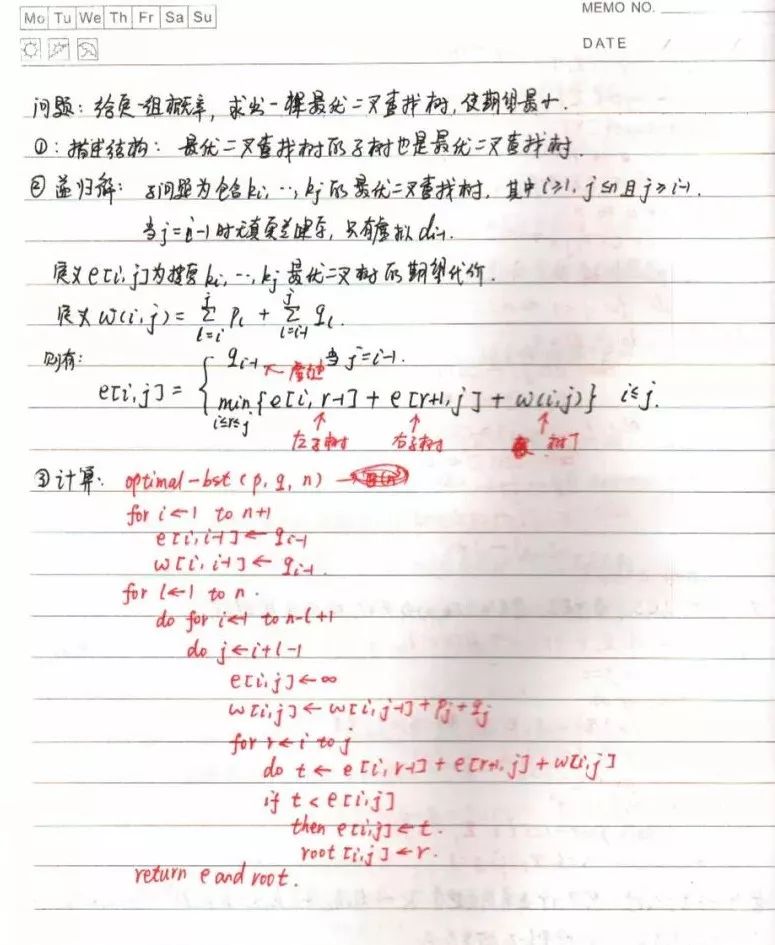 Mo Tu We Th Fr Sa Su
MEMO NO.
DATE / /
问题：给定一组概率，求出一棵最优二叉查找树，使期望最小.
①：描述结构：最优二叉查找树的子树也是最优二叉查找树.
② 递归解：子问题为包含ki, …, kj的最优二叉查找树，其中i≥1, j≤n且j≥i-1.
当j=i-1时无真实关键字，只有虚拟di-1.
定义e[i, j]为搜索ki, …, kj最优二叉树的期望代价.
定义 w(i, j) = Σ(l=i→j) Pl + Σ(l=i-1→j) ql.
则有：
e[i, j] = { qi-1 ← 虚键 当 j=i-1.
min i≤r≤j {e[i, r-1] + e[r+1, j] + w(i, j)} i≤j.
左子树 右子树 树下
③ 计算：optimal-bst (p, q, n) →
for i←1 to n+1
e[i, i-1] ← qi-1
w[i, i-1] ← qi-1
for l←1 to n.
do for i←1 to n-l+1
do j←i+l-1
e[i, j] ← ∞
w[i, j] ← w[i, j-1] + Pj + qj
for r←i to j
do t ← e[i, r-1] + e[r+1, j] + w[i, j]
if t < e[i, j]
then e[i, j] ← t.
root[i, j] ← r.
return e and root.